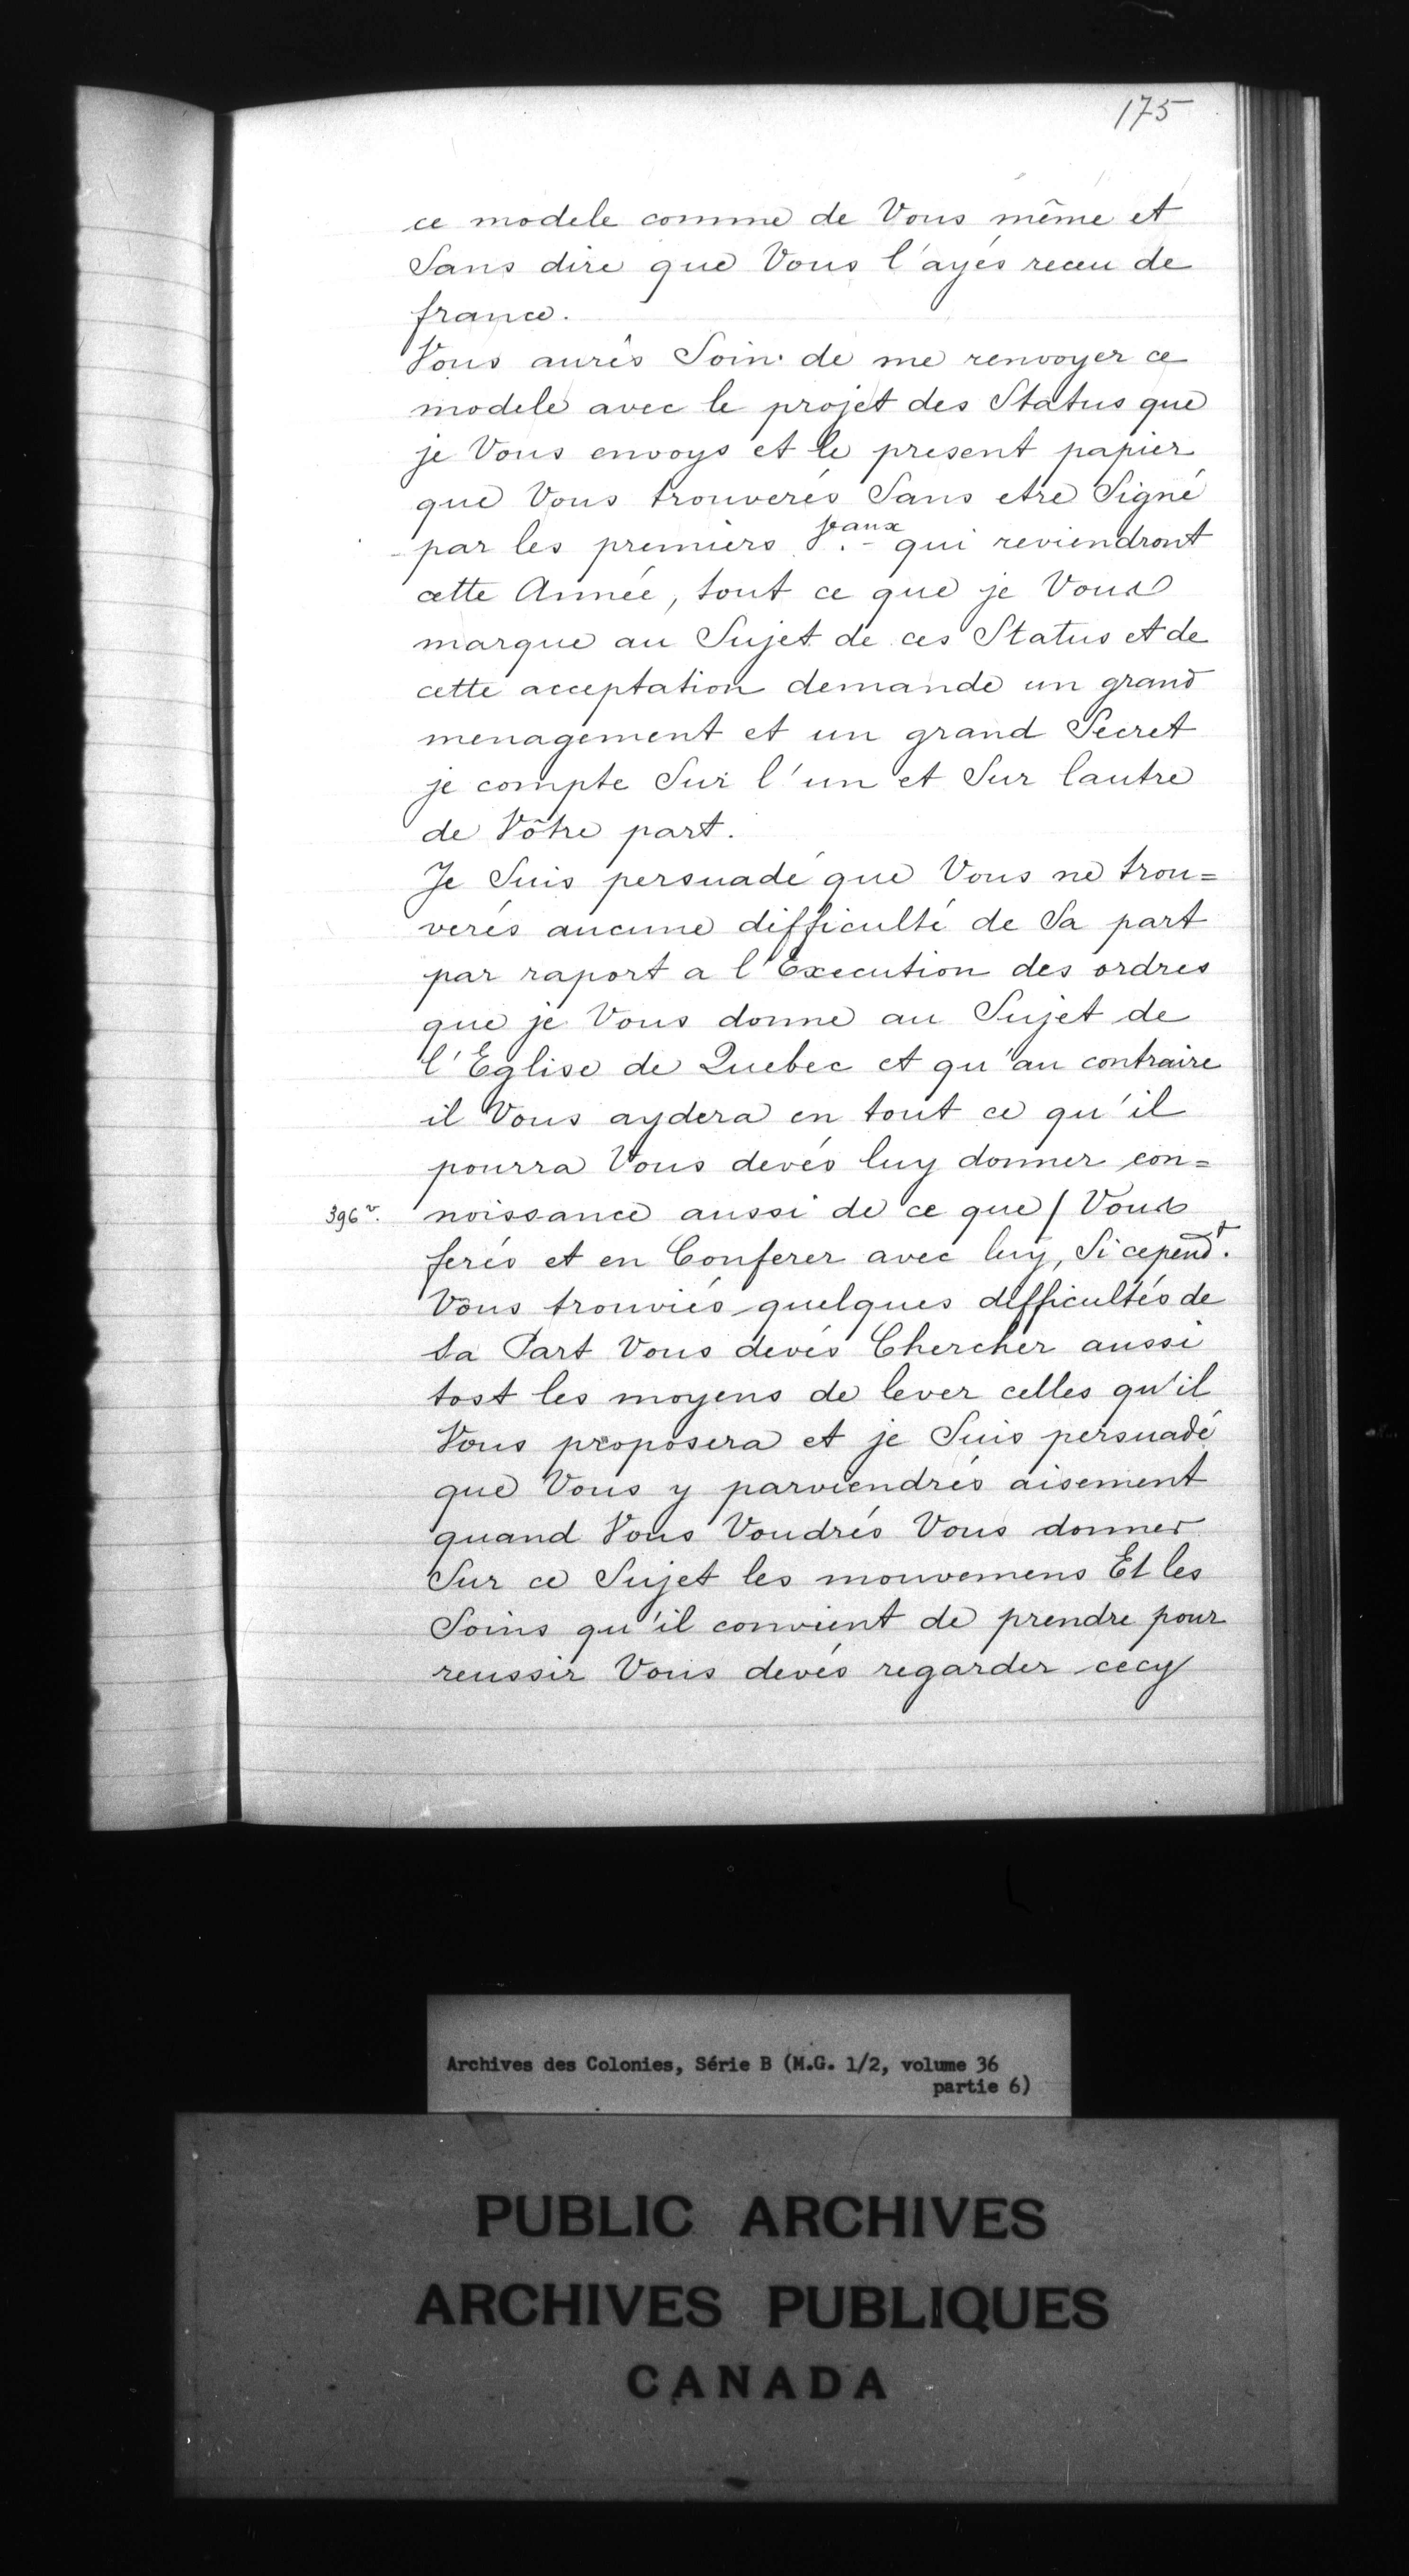 175
ce modele comme de Vous même et
Sans dire que Vous l'ayés receu de
france.
Vous aurés Soin de me renvoyer ce
modele avec le projet des Status que
je Vous envoys et le present papier
que Vous trouverés Sans etre Signé
par les premiers V.eaux qui reviendront
cette Année, tout ce que je Vous
marque au Sujet de ces Status et de
cette acceptation demande un grand
menagement et un grand Secret
je compte Sur l'un et Sur lautre
de Vôtre part.
Je Suis persuadé que Vous ne trou=
verés aucune difficulté de Sa part
par raport a l'Execution des ordres
que je Vous donne au Sujet de
l'Eglise de Quebec et qu'au contraire
il Vous aydera en tout ce qu'il
pourra Vous devés luy donner con=
396 v. noissance aussi de ce que / Vous
ferés et en Conferer avec luy, Si cepend.t
Vous trouviés quelques difficultés de
Sa Part Vous devés Chercher aussi
tost les moyens de lever celles qu'il
Vous proposera et je Suis persuadé
que Vous y parviendrés aisement
quand Vous Voudrés Vous donner
Sur ce Sujet les mouvemens Et les
Soins qu'il convient de prendre pour
reussir Vous devés regarder cecy
Archives des Colonies, Série B (M.G. 1/2, volume 36
partie 6)
PUBLIC ARCHIVES
ARCHIVES PUBLIQUES
CANADA